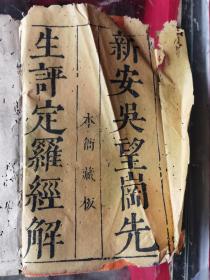 新安吳望崗先
生評定羅經解
本衙藏板